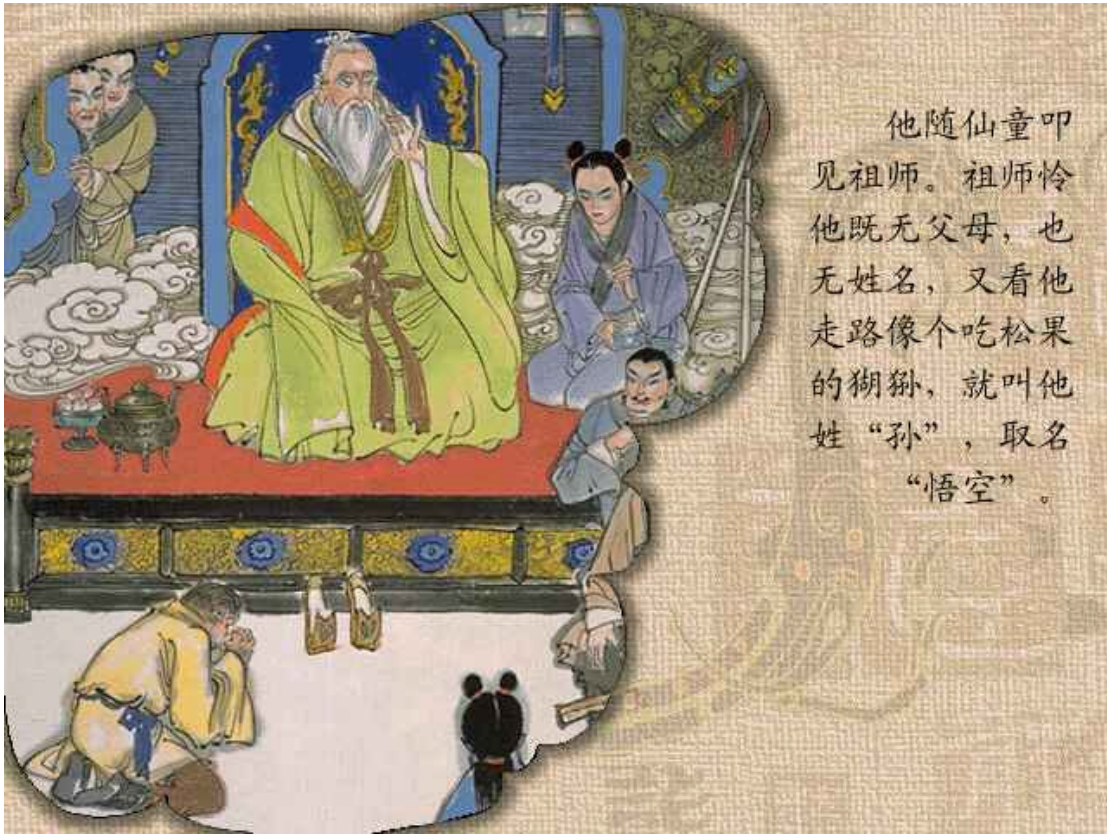 他随仙童叩
见祖师。祖师怜
他既无父母，也
无姓名，又看他
走路像个吃松果
的猢狲，就叫他
姓“孙”，取名
“悟空”。